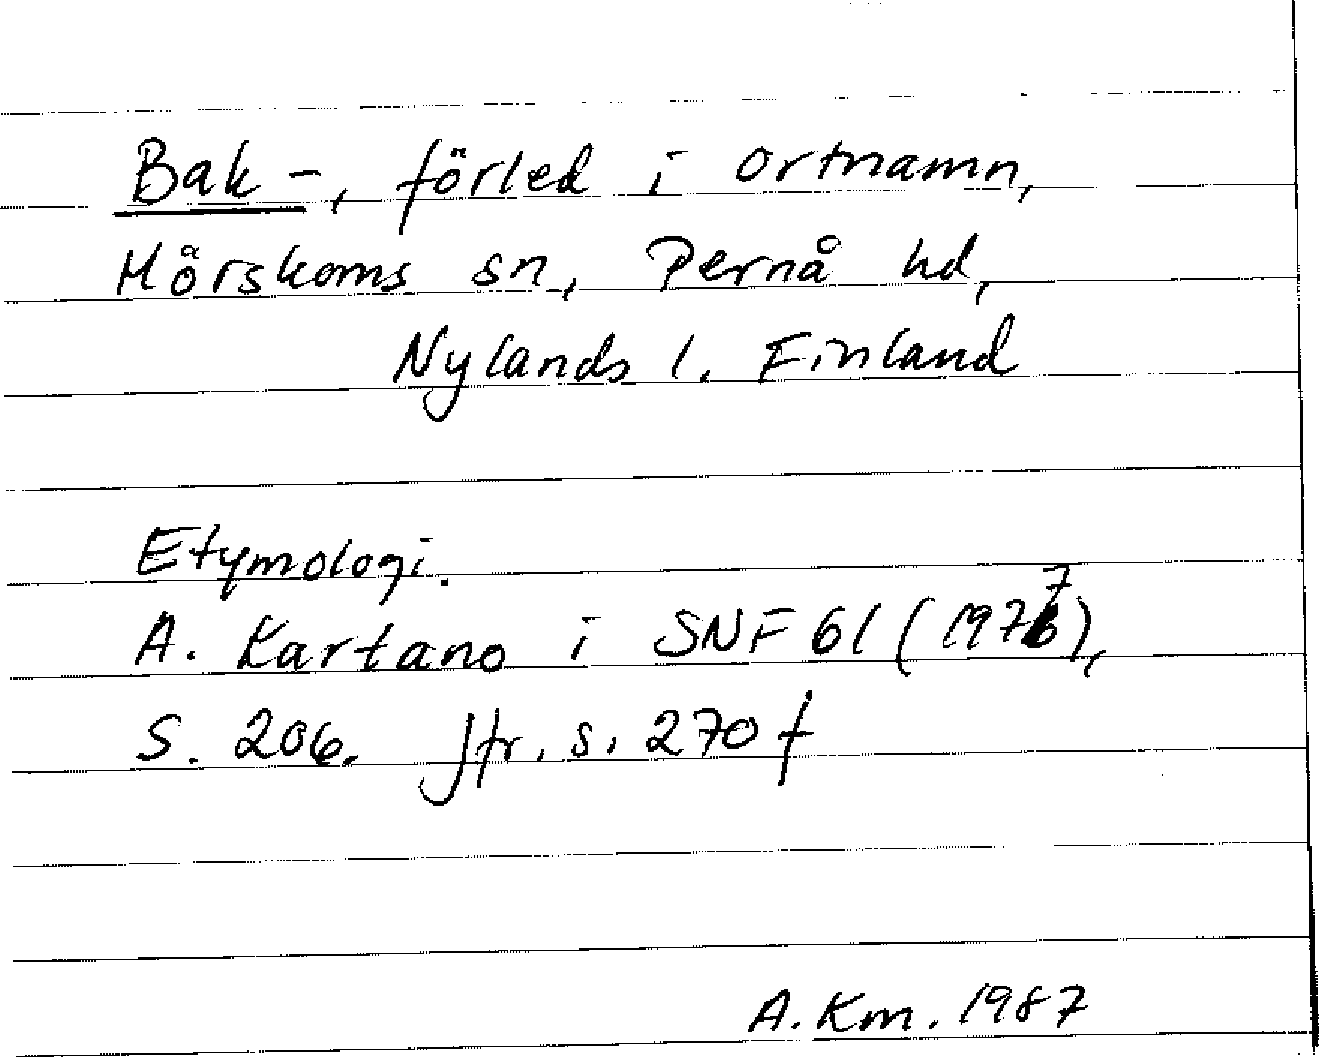 Bak-, förled i ortnamn,
Mörskoms sn, Pernå hd,
Nylands l. Finland
Etymologi.
A. Kartano i SNF 61 (1977),
S. 206. Jfr. s. 270 f
A. Km. 1987